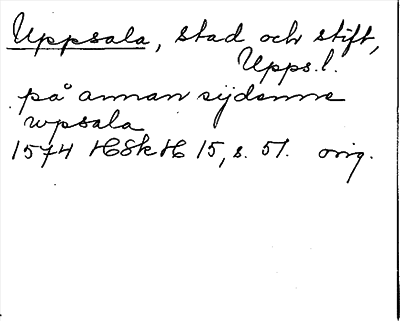 Uppsala, stad och stift,
Upps.l.
på annan sijdenne
wpsala
1574 HSkH 15, s. 51. orig.